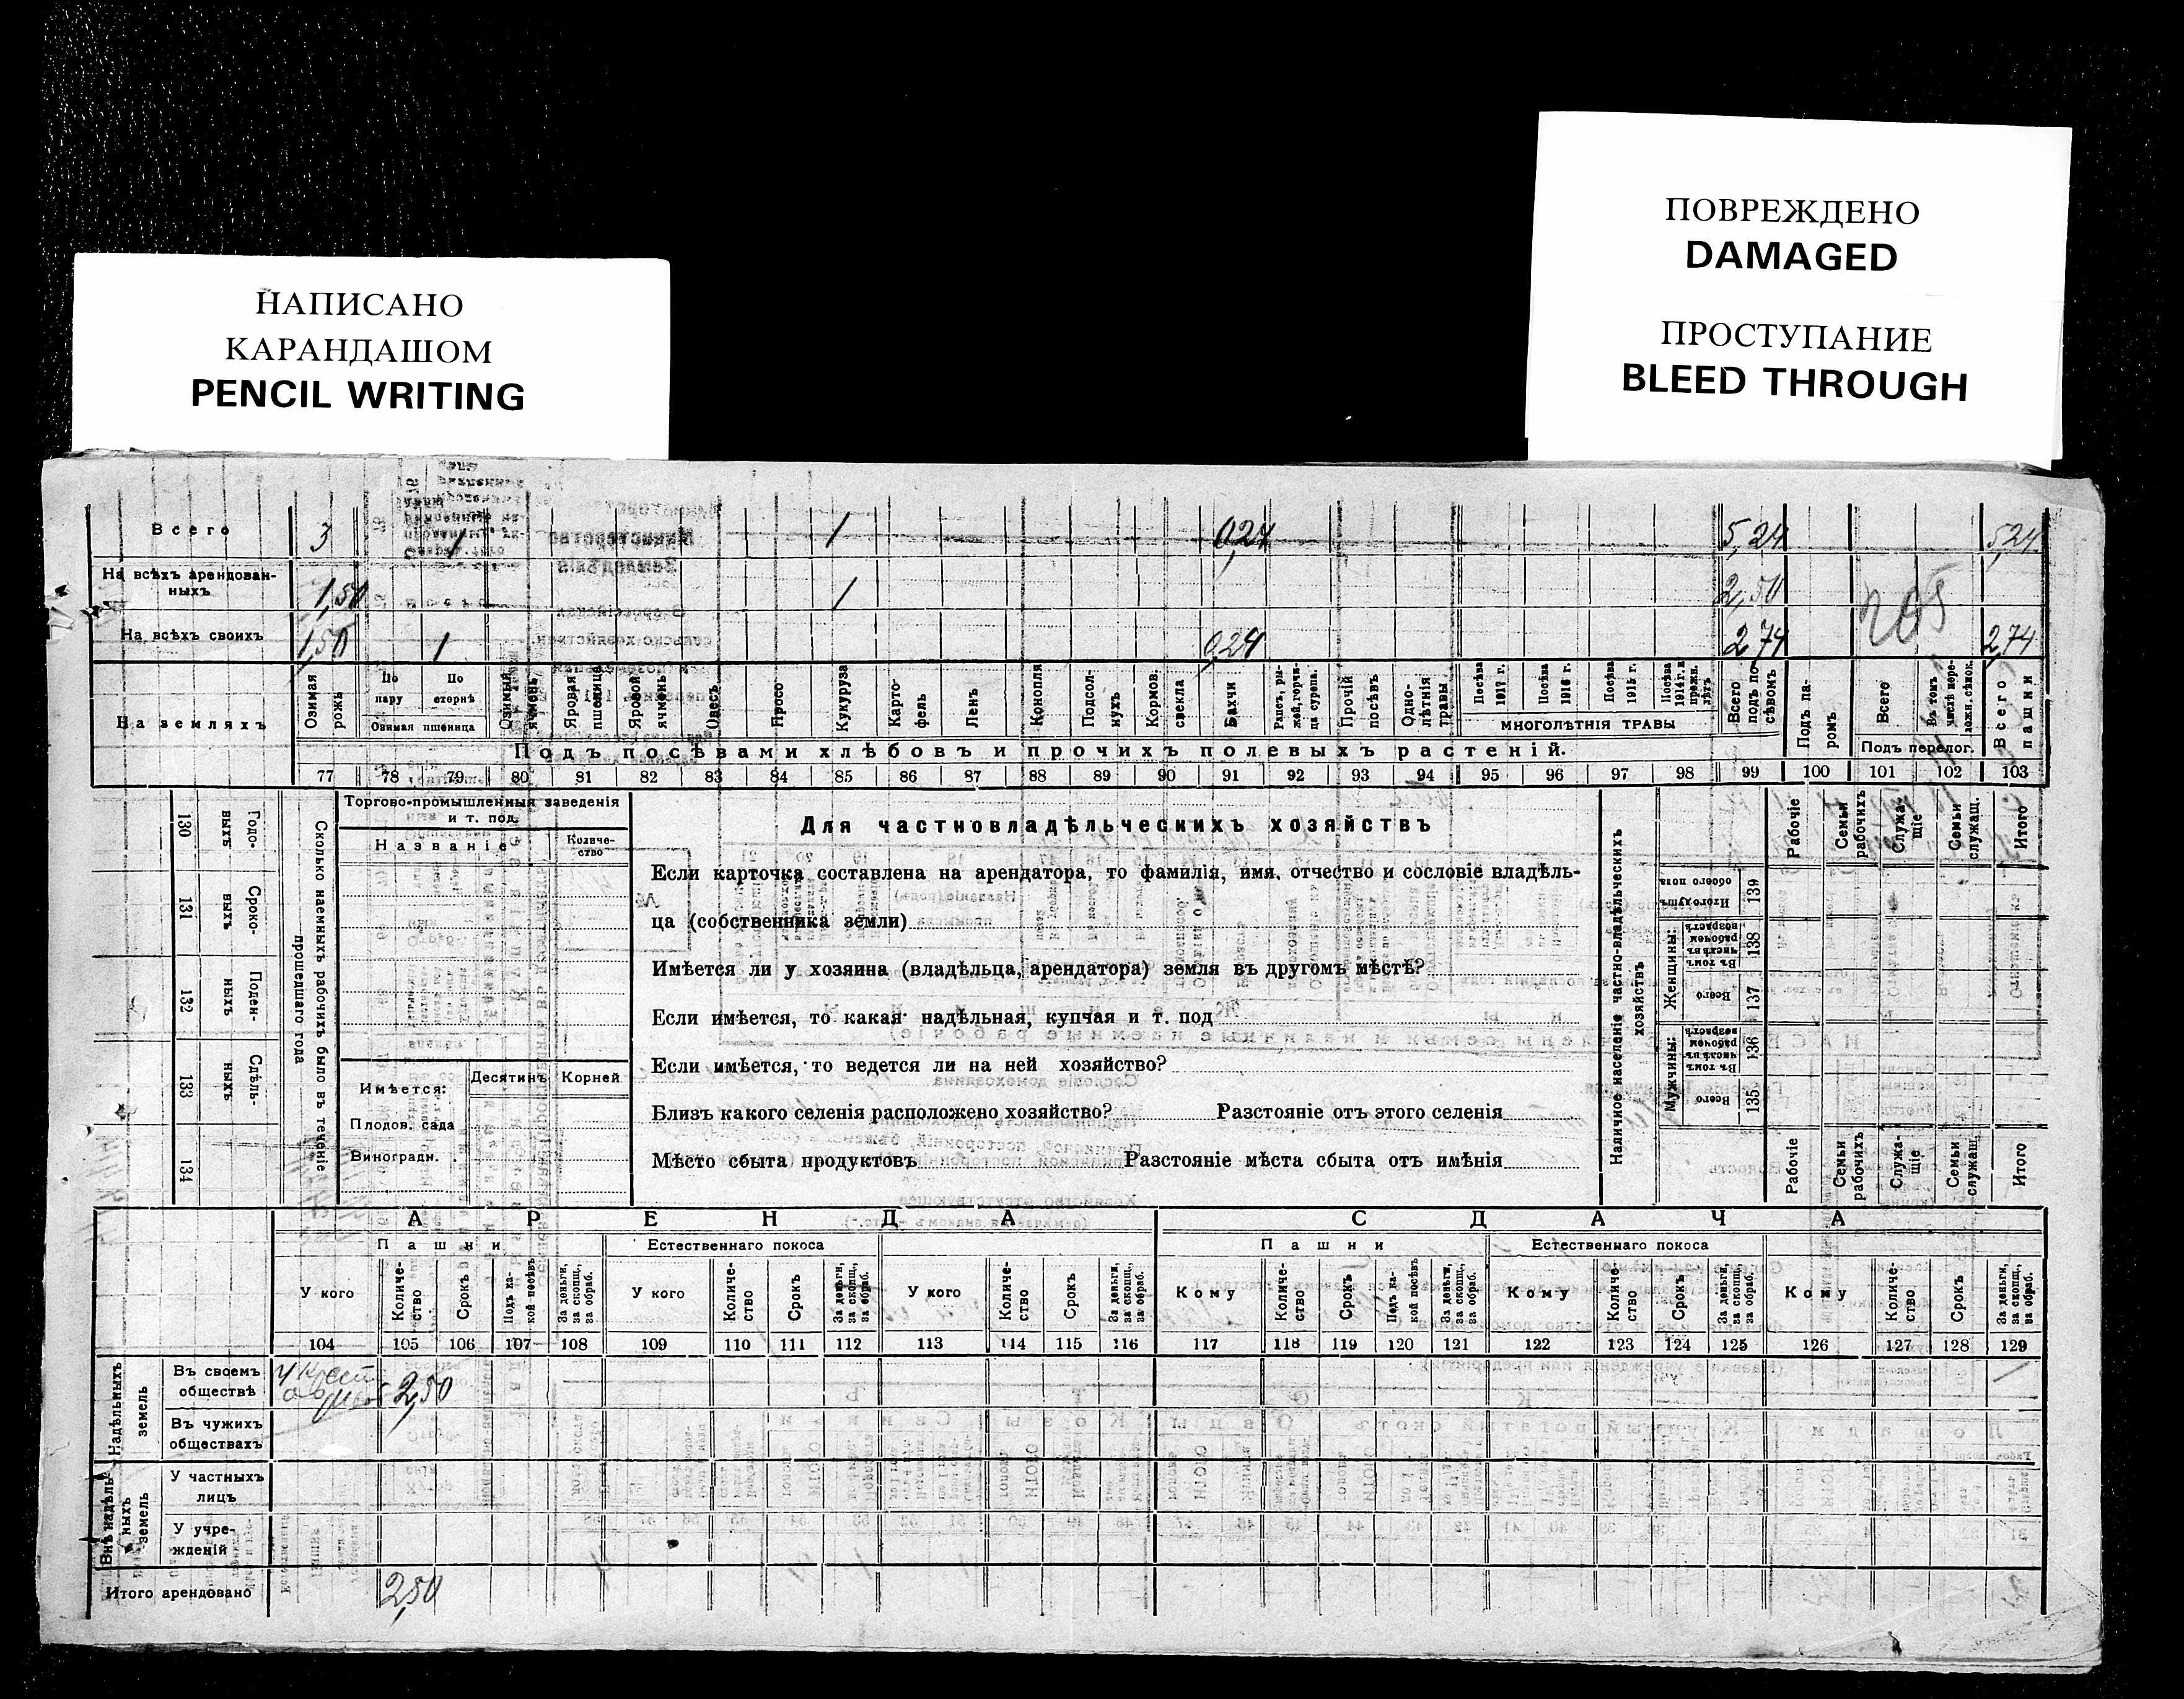 НАПИСАНО
КАРАНДАШОМ
PENCIL WRITING
ПОВРЕЖДЕНО
DAMAGED
ПРОСТУПАНИЕ
BLEED THROUGH
Всего 3 1 1 0,24 5,24 5,24
На всѣхъ арендован-
ныхъ 1,50 1 2,50
На всѣхъ своихъ 1,50 1 0,24 2,74 2,74
На земляхъ
Озимая рожь
По пару
По стернѣ
Озимая пшеница
Озимый ячмень
Яровая пшеница
Яровой ячмень
Овесъ
Просо
Кукуруза
Карто-
фель
Ленъ
Конопля
Подсол-
нухъ
Кормов. свекла
Бахчи
Рапсъ, ры-
жей, горчи-
ца сурепа.
Прочій посѣвъ
Одно-
лѣтнія травы
Посѣва 1917 г.
Посѣва 1916 г.
Посѣва 1915 г.
Посѣва 1914 г. и прежн. лѣтъ
МНОГОЛѢТНІЯ ТРАВЫ
Всего подъ по-
сѣвомъ
Подъ па-
ромъ
Всего
Въ томъ числѣ пере-
ложн. сѣнок.
Подъ перелог.
Всего пашни
Подъ посѣвами хлѣбовъ и прочихъ полевыхъ растеній.
77 78 79 80 81 82 83 84 85 86 87 88 89 90 91 92 93 94 95 96 97 98 99 100 101 102 103
130 Годо-
выхъ
131 Сроко-
выхъ
132 Поден-
ныхъ
133 Сдѣль-
ныхъ
134
Сколько наемныхъ рабочихъ было въ теченіе
прошедшаго года
Торгово-промышленныя заведенія
и т. под.
Названіе
Количе-
ство
Имѣется:
Десятинъ
Корней
Плодов. сада
Виноградн.
Для частновладѣльческихъ хозяйствъ
Если карточка составлена на арендатора, то фамилія, имя, отчество и сословіе владѣль-
ца (собственника земли)
Имѣется ли у хозяина (владѣльца, арендатора) земля въ другомъ мѣстѣ?
Если имѣется, то какая надѣльная, купчая и т. под
Если имѣется, то ведется ли на ней хозяйство?
Близъ какого селенія расположено хозяйство? Разстояніе отъ этого селенія
Мѣсто сбыта продуктовъ Разстояніе мѣста сбыта отъ имѣнія
Наличное населеніе частно-владѣльческихъ
хозяйствъ
Мужчины:
Женщины:
Всего 135
Въ томъ числѣ въ рабочемъ возрастѣ 136
Всего 137
Въ томъ числѣ въ рабочемъ возрастѣ 138
Итого душъ обоего пола 139
Рабочіе
Семьи рабочихъ
Служа-
щіе
Семьи служащ.
Итого
Рабочіе
Семьи рабочихъ
Служа-
щіе
Семьи служащ.
Итого
АРЕНДА
СДАЧА
Пашни
Естественнаго покоса
Пашни
Естественнаго покоса
У кого
Количе-
ство
Срокъ
Подъ ка-
кой посѣвъ
За деньги, за скопщ., за обраб.
У кого
Количе-
ство
Срокъ
За деньги, за скопщ., за обраб.
У кого
Количе-
ство
Срокъ
За деньги, за скопщ., за обраб.
Кому
Количе-
ство
Срокъ
Подъ ка-
кой посѣвъ
За деньги, за скопщ., за обраб.
Кому
Количе-
ство
Срокъ
За деньги, за скопщ., за обраб.
Кому
Количе-
ство
Срокъ
За деньги, за скопщ., за обраб.
104 105 106 107 108 109 110 111 112 113 114 115 116 117 118 119 120 121 122 123 124 125 126 127 128 129
Надѣльныхъ
земель
Въ своемъ
обществѣ 2,50
Въ чужихъ
обществахъ
Внѣ надѣль-
ныхъ
земель
У частныхъ
лицъ
У учре-
жденій
Итого арендовано 2,50